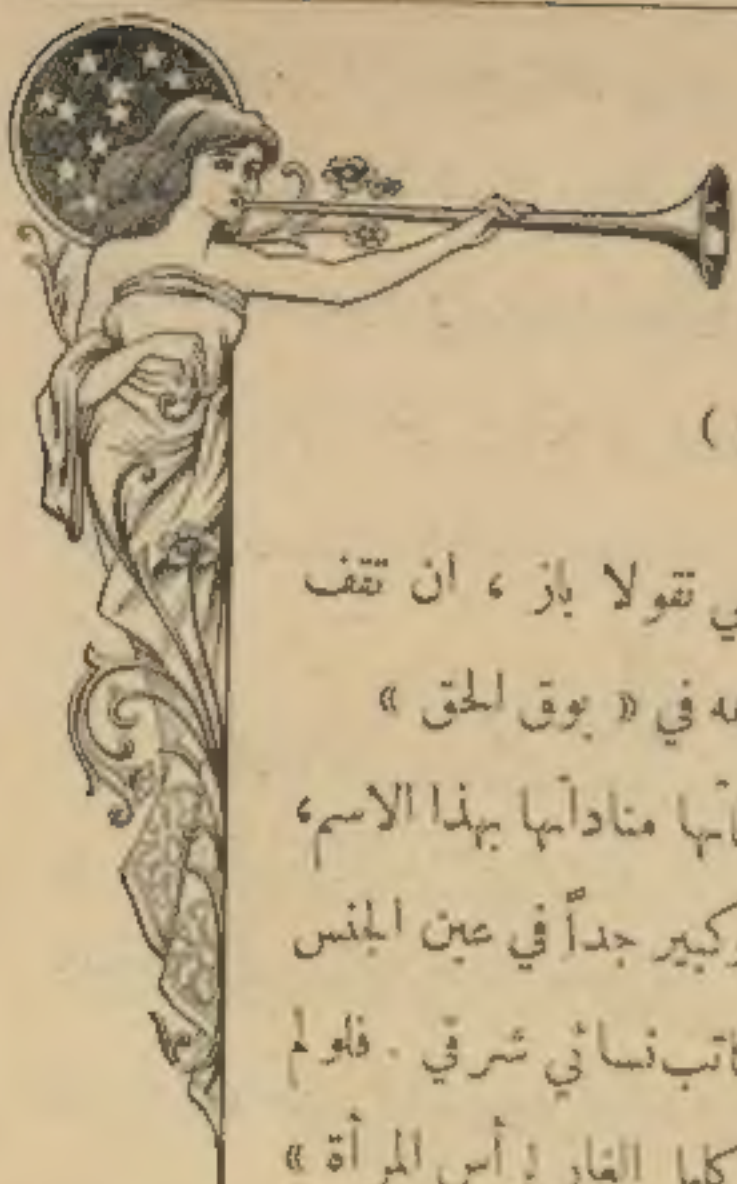 )
تقولا باز ، ان تقف
في « بوق الحق »
مناداتها بهذا الاسم،
كبير جداً في عين الجنس
نسائي شرقي . فلو لم
الغار لرأس المرأة »